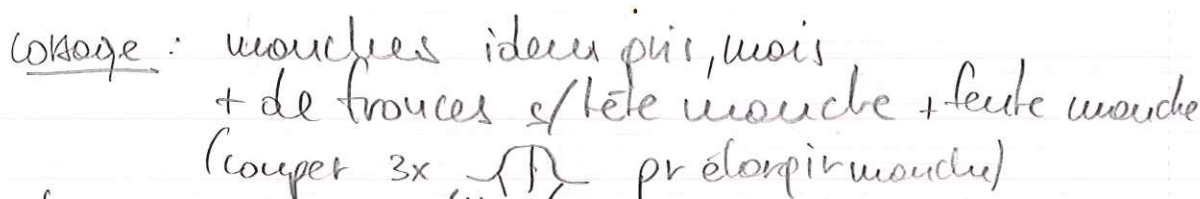 corsage : manches idem gris, mais
+ de fronces s/tête manche + fente manche
(couper 3x pr élargir manche)